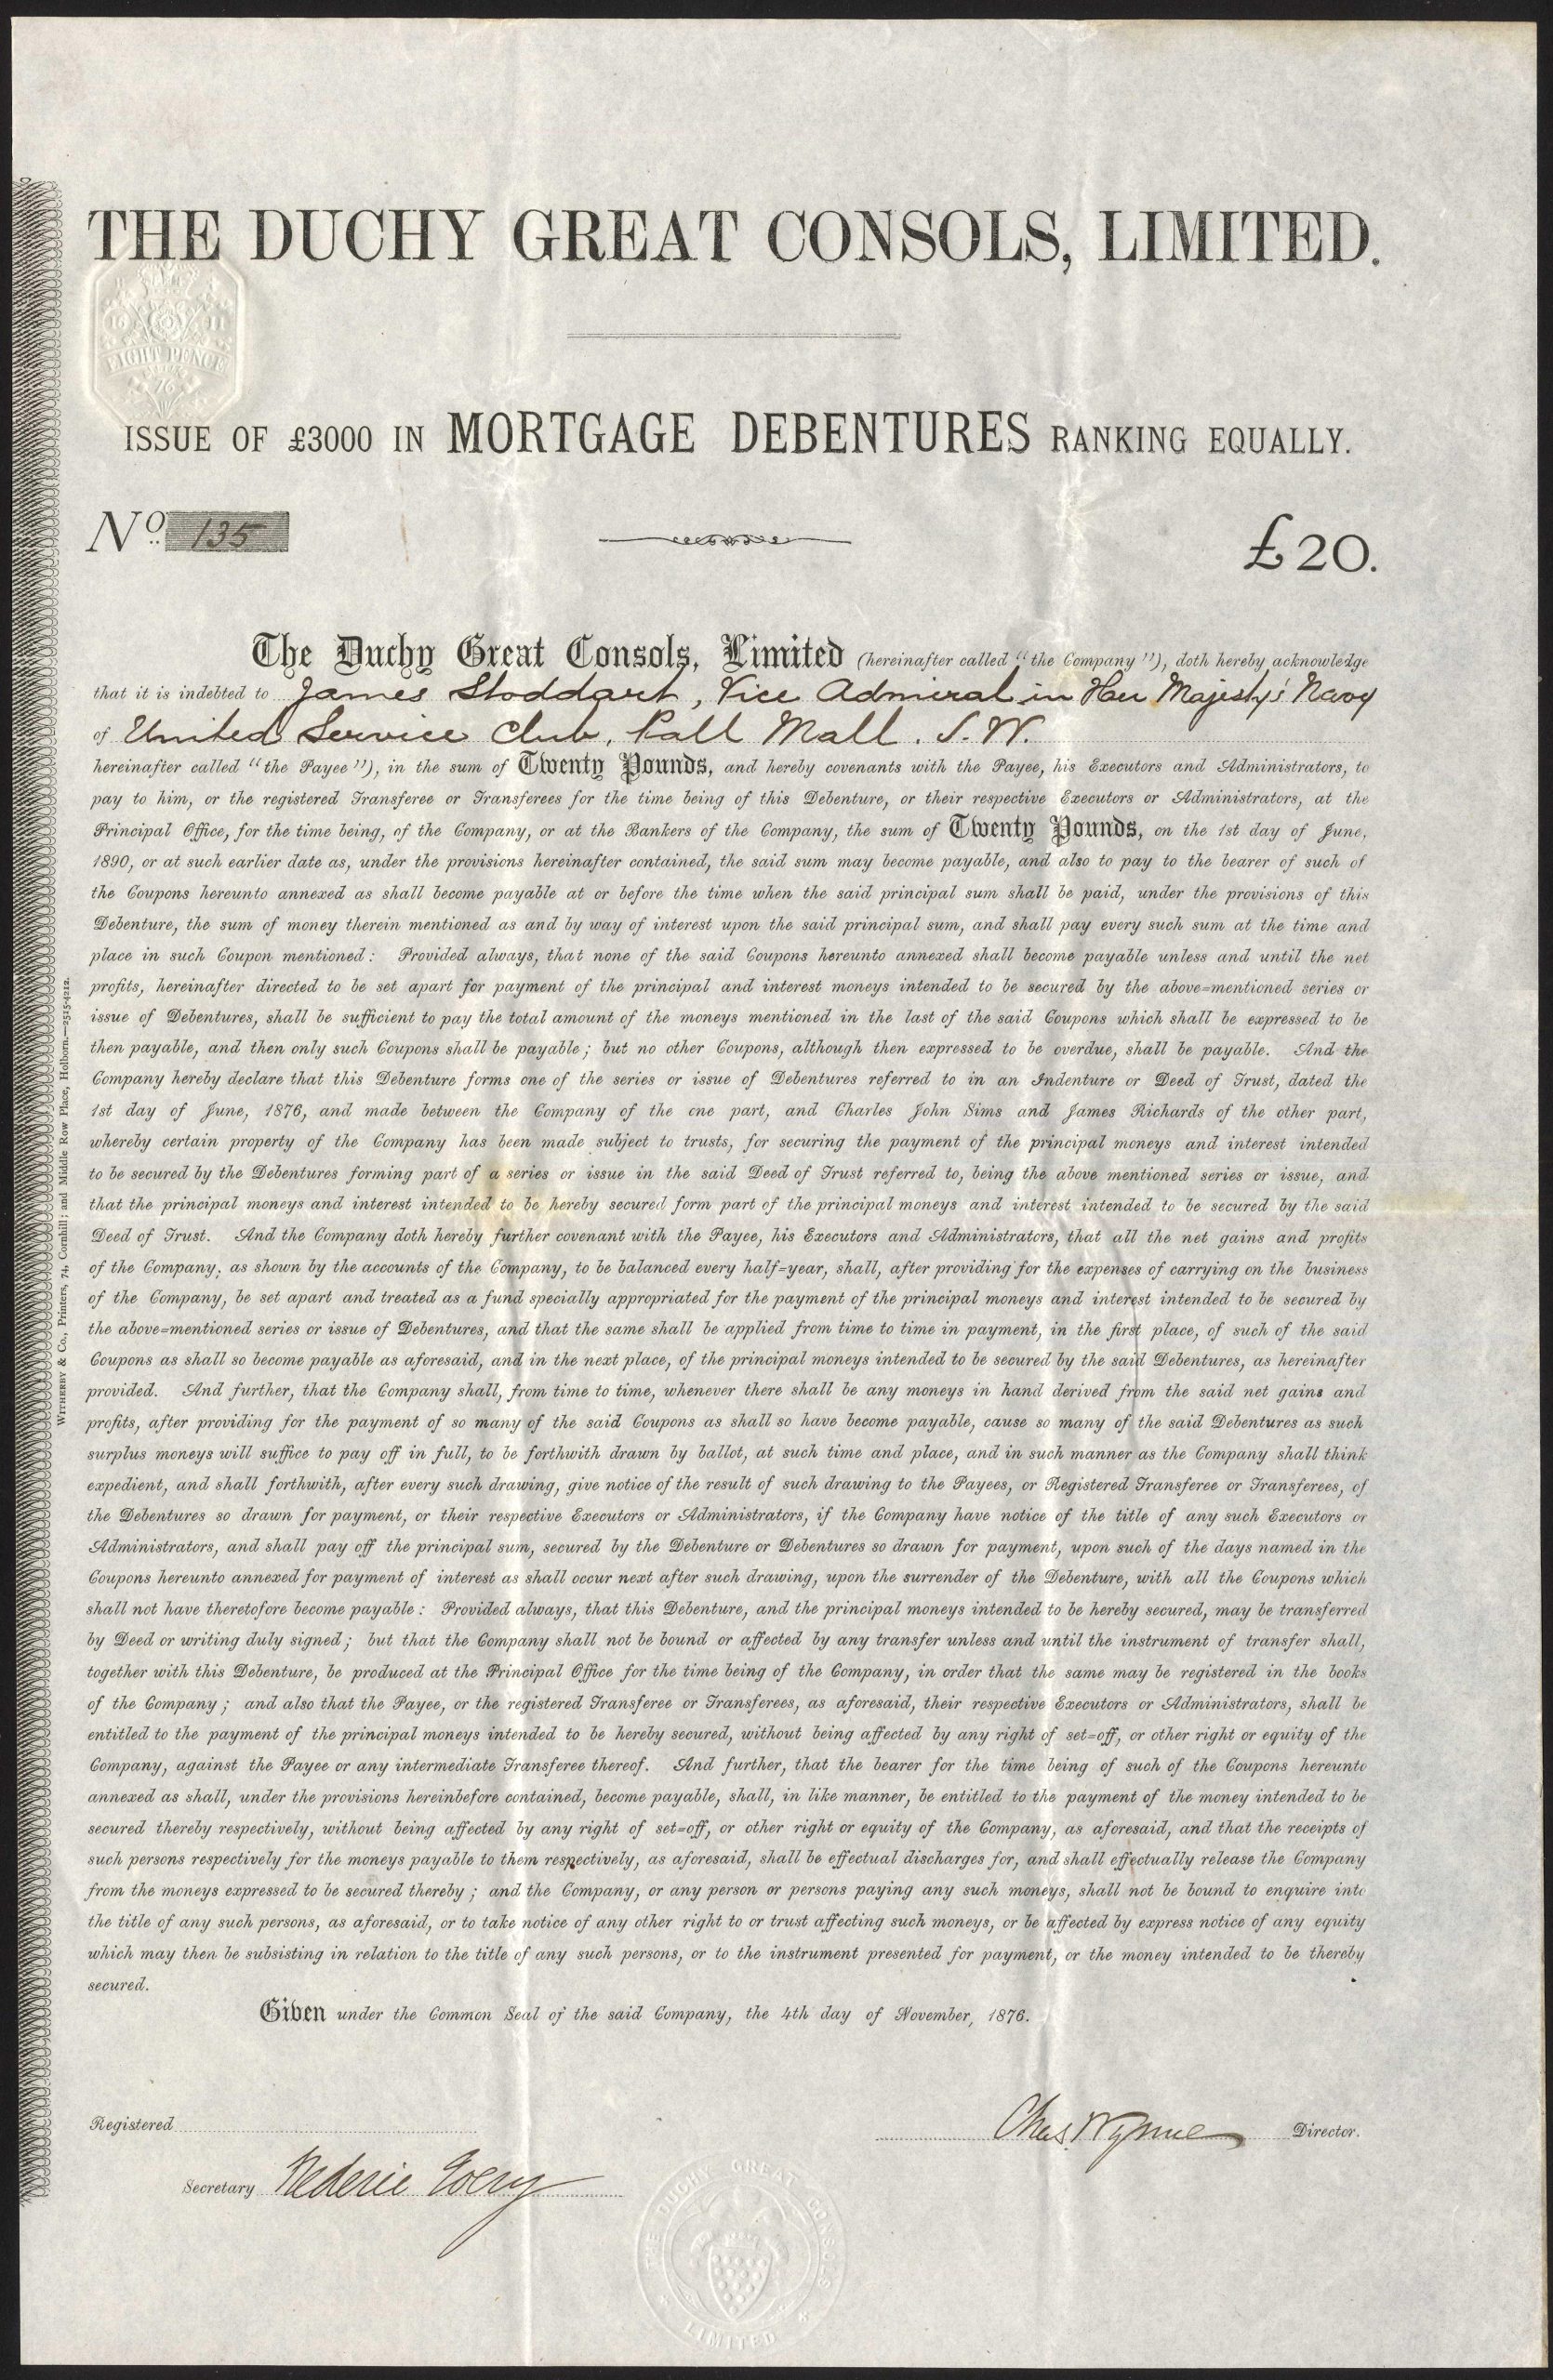 THE DUCHY GREAT CONSOLS, LIMITED.
10 11
EIGHT PENCE
76
ISSUE OF £3000 IN MORTGAGE DEBENTURES RANKING EQUALLY.
No. 135
£20.
The Duchy Great Consols, Limited (hereinafter called "the Company"), doth hereby acknowledge
that it is indebted to James Stoddart, Vice Admiral in Her Majesty's Navy
of United Service Club, Pall Mall. S.W.
hereinafter called "the Payee"), in the sum of Twenty Pounds, and hereby covenants with the Payee, his Executors and Administrators, to
pay to him, or the registered Transferee or Transferees for the time being of this Debenture, or their respective Executors or Administrators, at the
Principal Office, for the time being, of the Company, or at the Bankers of the Company, the sum of Twenty Pounds, on the 1st day of June,
1890, or at such earlier date as, under the provisions hereinafter contained, the said sum may become payable, and also to pay to the bearer of such of
the Coupons hereunto annexed as shall become payable at or before the time when the said principal sum shall be paid, under the provisions of this
Debenture, the sum of money therein mentioned as and by way of interest upon the said principal sum, and shall pay every such sum at the time and
place in such Coupon mentioned: Provided always, that none of the said Coupons hereunto annexed shall become payable unless and until the net
profits, hereinafter directed to be set apart for payment of the principal and interest moneys intended to be secured by the above-mentioned series or
issue of Debentures, shall be sufficient to pay the total amount of the moneys mentioned in the last of the said Coupons which shall be expressed to be
then payable, and then only such Coupons shall be payable; but no other Coupons, although then expressed to be overdue, shall be payable. And the
Company hereby declare that this Debenture forms one of the series or issue of Debentures referred to in an Indenture or Deed of Trust, dated the
1st day of June, 1876, and made between the Company of the one part, and Charles John Sims and James Richards of the other part,
whereby certain property of the Company has been made subject to trusts, for securing the payment of the principal moneys and interest intended
to be secured by the Debentures forming part of a series or issue in the said Deed of Trust referred to, being the above mentioned series or issue, and
that the principal moneys and interest intended to be hereby secured form part of the principal moneys and interest intended to be secured by the said
Deed of Trust. And the Company doth hereby further covenant with the Payee, his Executors and Administrators, that all the net gains and profits
of the Company, as shown by the accounts of the Company, to be balanced every half-year, shall, after providing for the expenses of carrying on the business
of the Company, be set apart and treated as a fund specially appropriated for the payment of the principal moneys and interest intended to be secured by
the above-mentioned series or issue of Debentures, and that the same shall be applied from time to time in payment, in the first place, of such of the said
Coupons as shall so become payable as aforesaid, and in the next place, of the principal moneys intended to be secured by the said Debentures, as hereinafter
provided. And further, that the Company shall, from time to time, whenever there shall be any moneys in hand derived from the said net gains and
profits, after providing for the payment of so many of the said Coupons as shall so have become payable, cause so many of the said Debentures as such
surplus moneys will suffice to pay off in full, to be forthwith drawn by ballot, at such time and place, and in such manner as the Company shall think
expedient, and shall forthwith, after every such drawing, give notice of the result of such drawing to the Payees, or Registered Transferee or Transferees, of
the Debentures so drawn for payment, or their respective Executors or Administrators, if the Company have notice of the title of any such Executors or
Administrators, and shall pay off the principal sum, secured by the Debenture or Debentures so drawn for payment, upon such of the days named in the
Coupons hereunto annexed for payment of interest as shall occur next after such drawing, upon the surrender of the Debenture, with all the Coupons which
shall not have theretofore become payable: Provided always, that this Debenture, and the principal moneys intended to be hereby secured, may be transferred
by Deed or writing duly signed; but that the Company shall not be bound or affected by any transfer unless and until the instrument of transfer shall,
together with this Debenture, be produced at the Principal Office for the time being of the Company, in order that the same may be registered in the books
of the Company; and also that the Payee, or the registered Transferee or Transferees, as aforesaid, their respective Executors or Administrators, shall be
entitled to the payment of the principal moneys intended to be hereby secured, without being affected by any right of set-off, or other right or equity of the
Company, against the Payee or any intermediate Transferee thereof. And further, that the bearer for the time being of such of the Coupons hereunto
annexed as shall, under the provisions hereinbefore contained, become payable, shall, in like manner, be entitled to the payment of the money intended to be
secured thereby respectively, without being affected by any right of set-off, or other right or equity of the Company, as aforesaid, and that the receipts of
such persons respectively for the moneys payable to them respectively, as aforesaid, shall be effectual discharges for, and shall effectually release the Company
from the moneys expressed to be secured thereby; and the Company, or any person or persons paying any such moneys, shall not be bound to enquire into
the title of any such persons, as aforesaid, or to take notice of any other right to or trust affecting such moneys, or be affected by express notice of any equity
which may then be subsisting in relation to the title of any such persons, or to the instrument presented for payment, or the money intended to be thereby
secured.
Given under the Common Seal of the said Company, the 4th day of November, 1876.
Registered
Chas. Wynne Director.
Secretary
THE DUCHY GREAT CONSOLS
LIMITED
WITHERBY & Co., Printers, 74, Cornhill; and Middle Row Place, Holborn.—2515-4212.